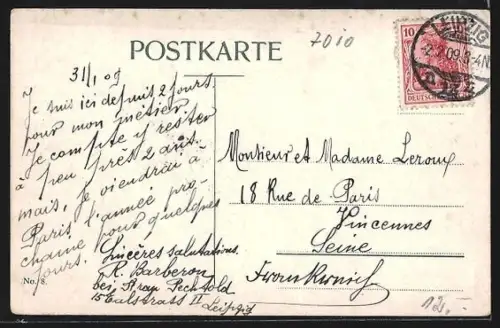 POSTKARTE
7010
10
DEUTSCHES
LEIPZIG
-2.2.09.8-4N
31/1 09
Je suis ici depuis 2 jours
pour mon métier
Je compte y rester
à peu près 2 ans.
mais, je viendrai à
Paris l'année pro-
chaine pour quelques
jours.
Sincères salutations.
R. Barberon
bei Frau Pechtold
II
Leipzig
No. 8.
Monsieur et Madame Leroux
18 Rue de Paris
Vincennes
Seine
Frankreich
12.-